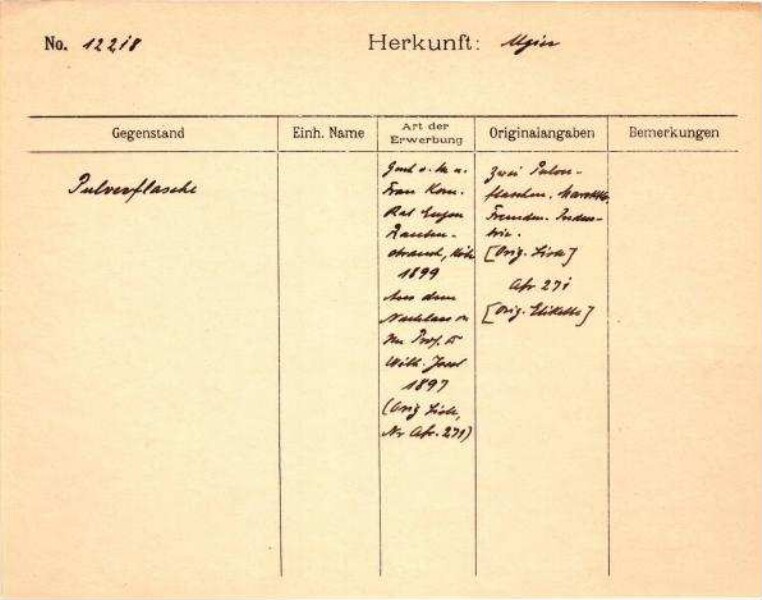 No. 12218 Herkunft:
Gegenstand Einh. Name Art der Erwerbung Originalangaben Bemerkungen
Pulverflasche
Frau Kom.
Rat Eugen
Rauten-
strauch,
1899
Aus dem
Nachlass
Prof. Dr
Wilh. Joest
1897
(Orig Liste,
Nr Afr. 271)
Zwei Pulver-
flaschen.
Fremden. Indus-
trie.
[Orig. Liste]
Afr 271
[Orig. Etikette]